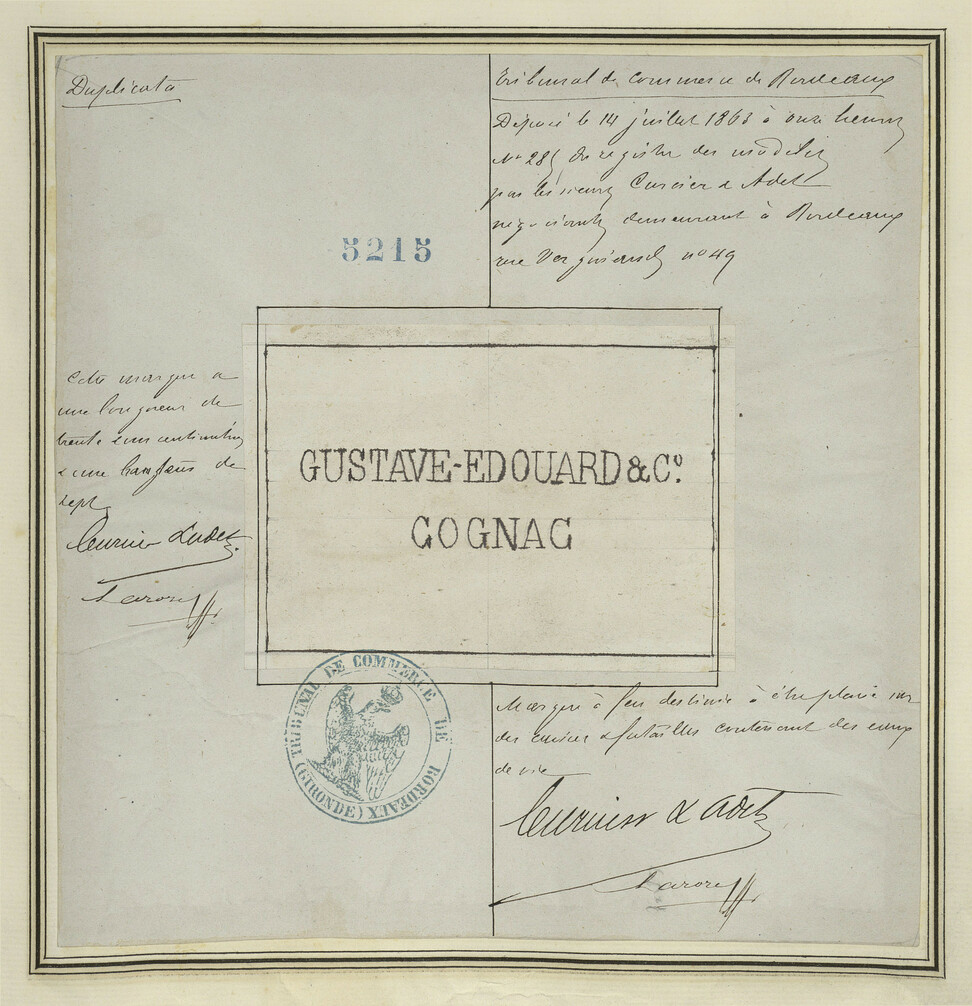 Duplicata
Tribunal de Commerce de Bordeaux
Déposé le 14 juillet 1863 à onze heures
No 285 du registre des modèles
par les sieurs Curcier & Adet
négociants demeurant à Bordeaux
rue Vergniaud no 49
5215
Cette marque a
une longueur de
trente cinq centimètres
& une hauteur de
sept
Curcier & Adet
GUSTAVE-EDOUARD & Co.
COGNAC
TRIBUNAL DE COMMERCE DE BORDEAUX (GIRONDE)
Marque à feu destinée à être placée sur
des caisses & futailles contenant des eaux
de vie
Curcier & Adet